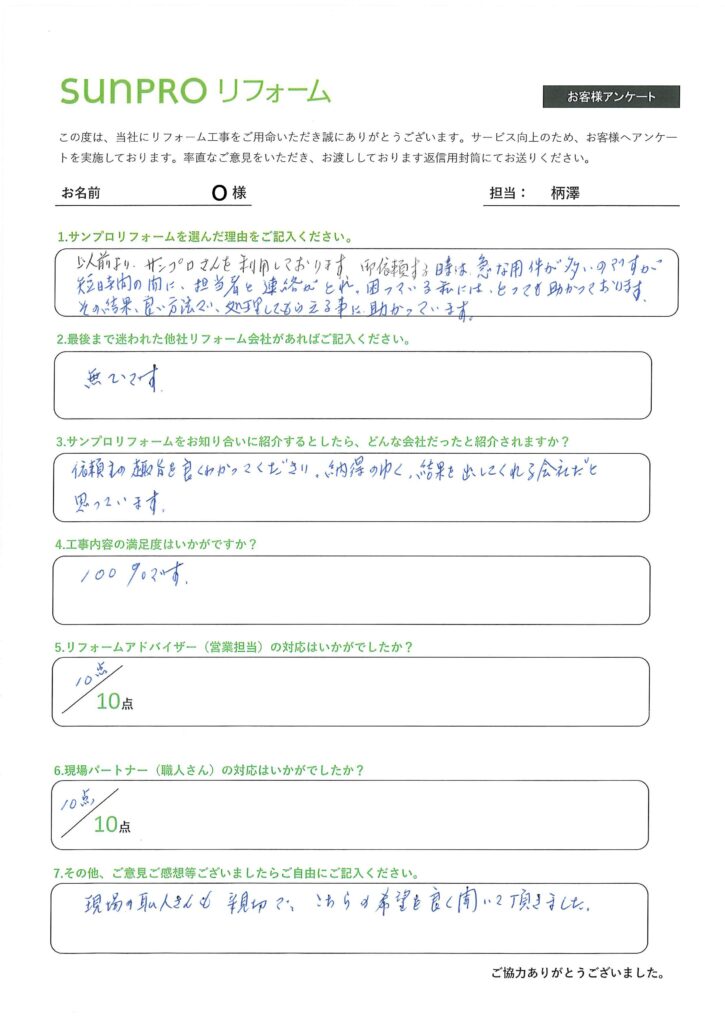 sunpro リフォーム
お客様アンケート
この度は、当社にリフォーム工事をご用命いただき誠にありがとうございます。サービス向上のため、お客様へアンケー
トを実施しております。率直なご意見をいただき、お渡ししております返信用封筒にてお送りください。
お名前 O 様 担当： 柄澤
1.サンプロリフォームを選んだ理由をご記入ください。
以前より、サンプロさんを利用しております。御依頼する時は、急な用件が多いのですが
短時間の間に、担当者と連絡がとれ、困っている私には、とっても助かっております。
その結果、良い方法で、処理してもらえる事に助かっています。
2.最後まで迷われた他社リフォーム会社があればご記入ください。
無いです。
3.サンプロリフォームをお知り合いに紹介するとしたら、どんな会社だったと紹介されますか？
依頼主の趣旨を良くわかってくださり、納得のゆく、結果を出してくれる会社だと
思っています。
4.工事内容の満足度はいかがですか？
100%です。
5.リフォームアドバイザー（営業担当）の対応はいかがでしたか？
10点
10点
6.現場パートナー（職人さん）の対応はいかがでしたか？
10点
10点
7.その他、ご意見ご感想等ございましたらご自由にご記入ください。
現場の職人さんも親切で、こちらの希望を良く聞いて頂きました。
ご協力ありがとうございました。